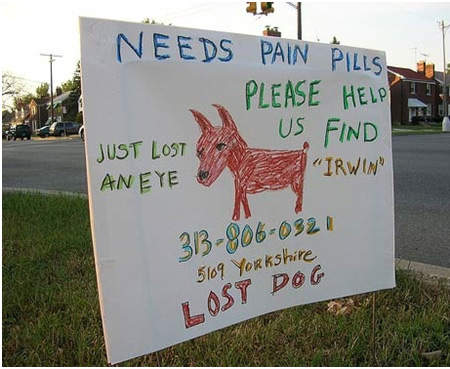 NEEDS PAIN PILLS
PLEASE HELP
US FIND
"IRWIN"
JUST LOST
AN EYE
313-806-0321
5109 Yorkshire
LOST DOG